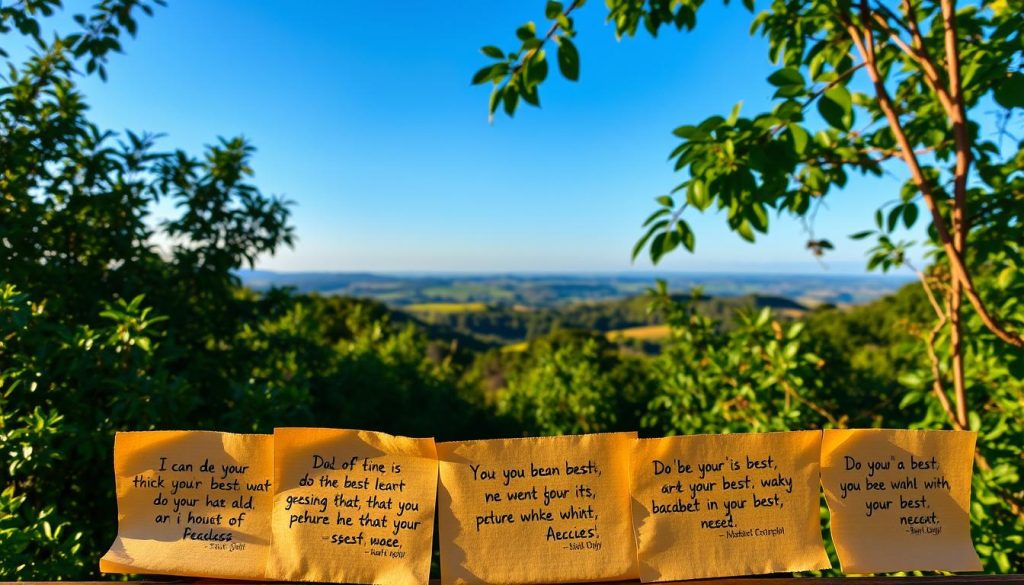 I can de your
thick your best wat
do your hat ald
an i houet of
Feccless
Dad of fine is
do the best leart
gresing that, that you
pehure he that your
-ssesf, woee,
You you bean best,
ne went four its,
peture whke whint,
Aeccies!
Do 'be your'is best,
art your best, waky
bacabet in your best,
nesed.
Do your'a best,
you bee wahl with,
your best,
neccnt,